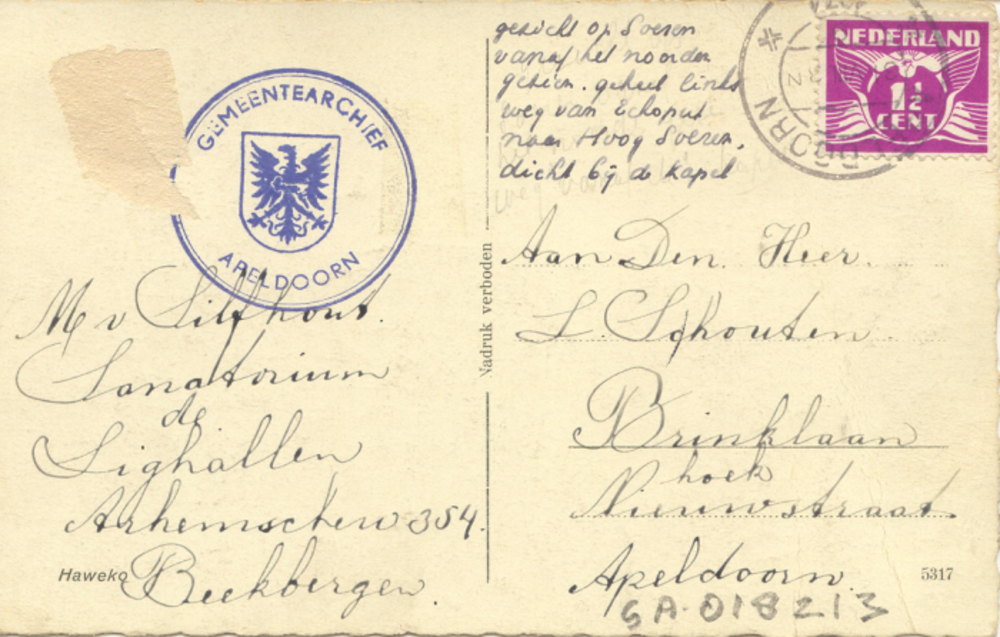 gezicht op Soeren
vanaf het noorden
gezien. geheel links
weg van Echoput
naar Hoog Soeren,
dicht bij de kapel
NEDERLAND
1½
CENT
GEMEENTEARCHIEF
APELDOORN
Nadruk verboden
M v Silfhout.
Sanatorium
de
Lighallen
Arhemschew 354.
Beekbergen.
Haweko
Aan Den Heer.
L. Schouten.
Brinklaan
hoek
Nieuwstraat.
Apeldoorn.
5317
GA-018213